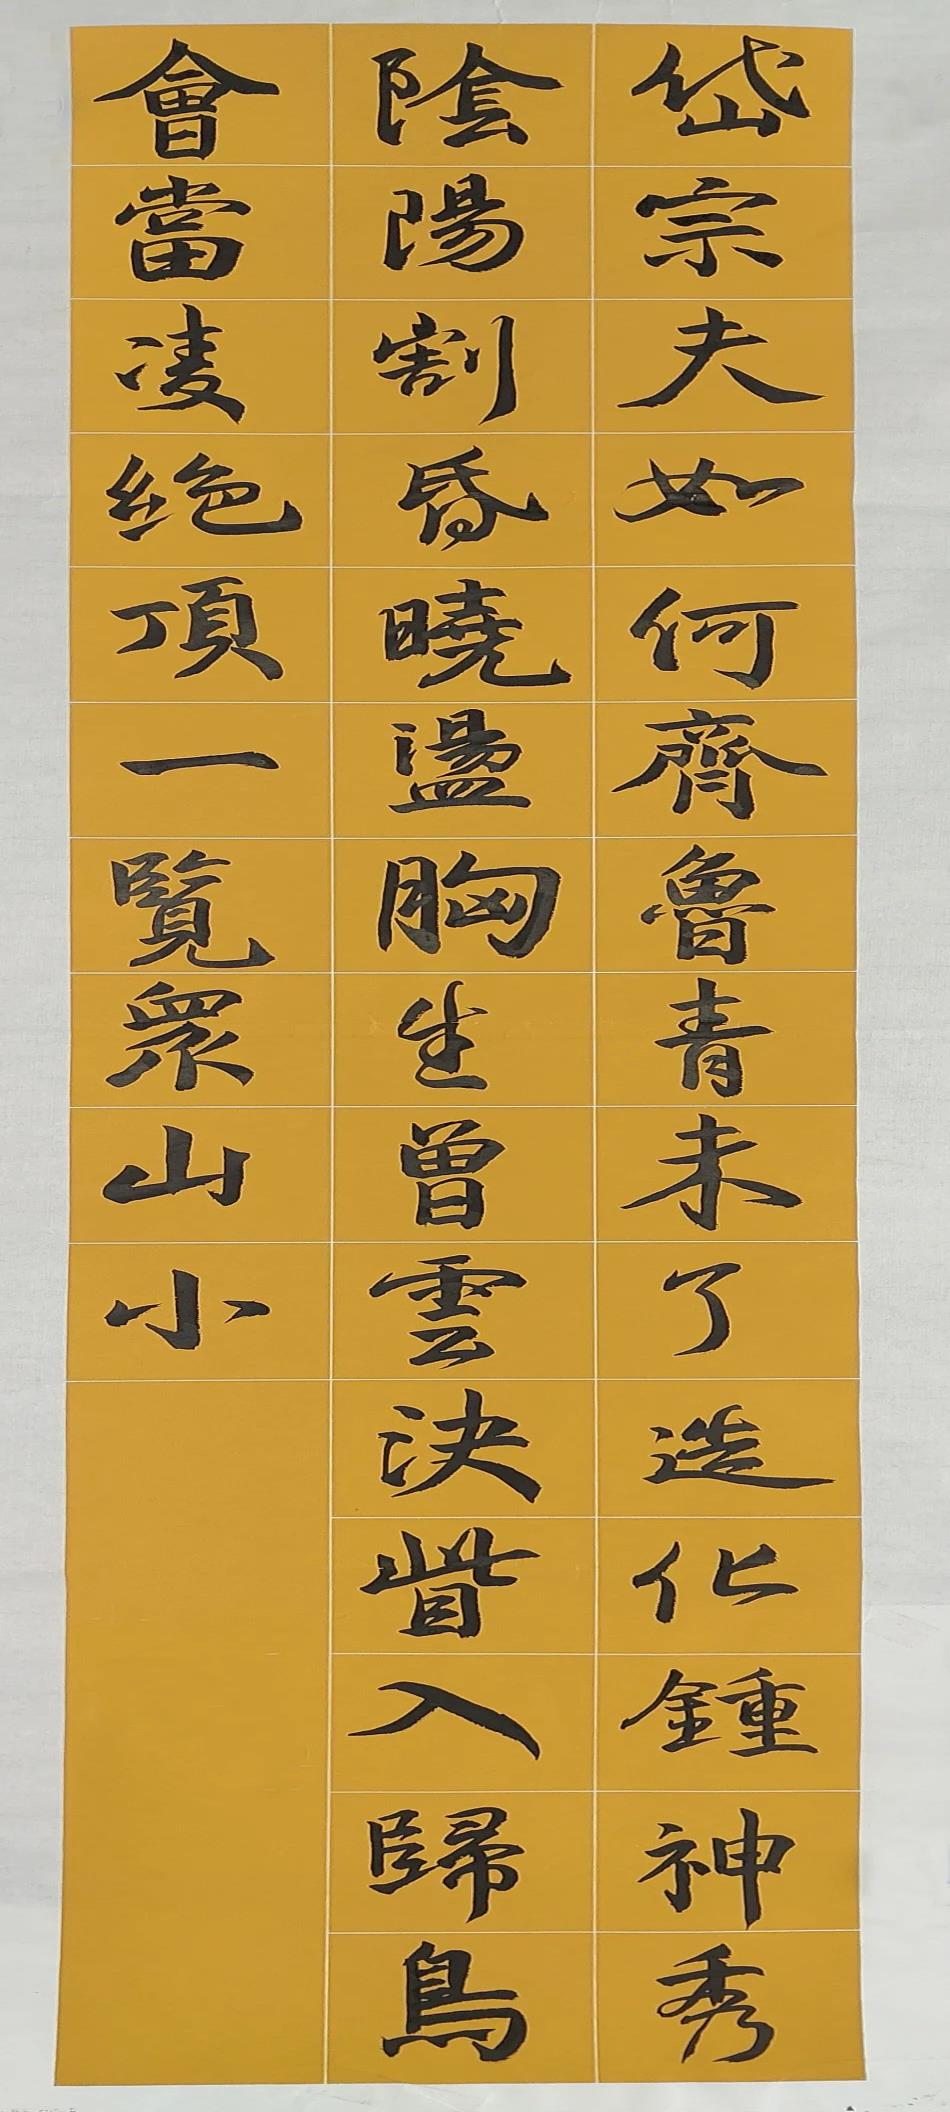 岱宗夫如何齊魯青未了造化鍾神秀
陰陽割昏曉盪胸生曾雲決眥入歸鳥
會當凌絶頂一覧衆山小